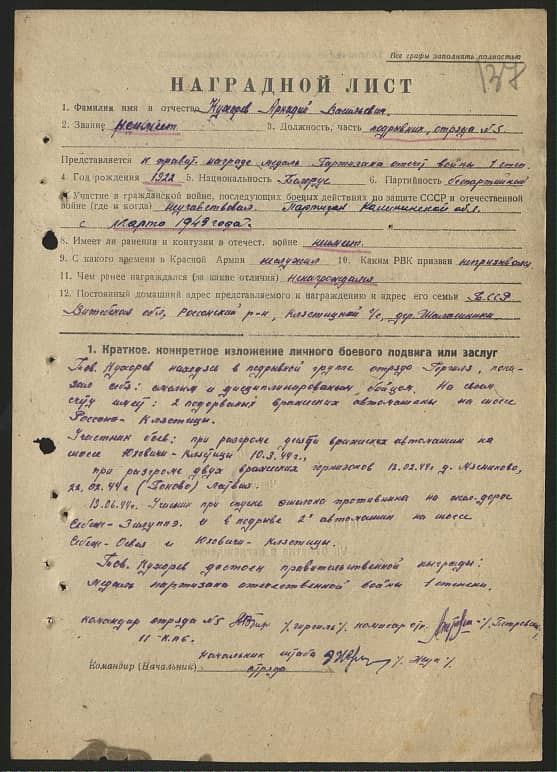 Все графы заполнять полностью
137
НАГРАДНОЙ ЛИСТ
1. Фамилия имя и отчество Кухорев Аркадий Васильевич.
2. Звание неимеет 3. Должность, часть подрывник, отряда №5.
Представляется к правит. награде медаль Партизана отечест войны 1 степ.
4 Год рождения 1922 5. Национальность Белорус 6. Партийность беспартийный
7. Участие в гражданской войне, последующих боевых действиях по защите СССР и отечественной
войне (где и когда) Неучавствовал. Партизан Калининской обл.
с марта 1943 года.
8. Имеет ли ранения и контузии в отечест. войне неимеет.
9. С какого времени в Красной Армии неслужил 10. Каким РВК призван непризывался
11. Чем ранее награждался (за какие отличия) Ненаграждался
12. Постоянный домашний адрес представляемого к награждению и адрес его семьи БССР
Витебская обл, Россонский р-н, Клястицкий с/с, дер.
1. Краткое, конкретное изложение личного боевого подвига или заслуг
Тов. Кухорев находясь в подрывной группе отряда Герцева, пока-
зал себя: смелым и дисциплинированым бойцом. На своем
счету имеет: 2 подорваные вражеских автомашины на шоссе
Россоно-Клястицы.
Участник боев: при разгроме десяти вражиских автомашин на
шоссе Юховичи-Клястицы 10.3.44г.,
при разгроме двух вражеских гарнизонов 13.02.44г. д. Мяснилово,
22.02.44г. Латвия.
13.06.44г. Участник при спуске эшелона противника на жел-дороге
Себеж-Зилуппэ. и в подрыве 2х автомашин на шоссе
Себеж-Освея и Юховичи-Клястицы.
Тов. Кухорев достоен правительственной награды:
Медаль партизана отечественной войны 1 степени.
Командир отряда №5 комисар отр.
II К.П.Б.
начальник штаба
Командир (Начальник) отряда